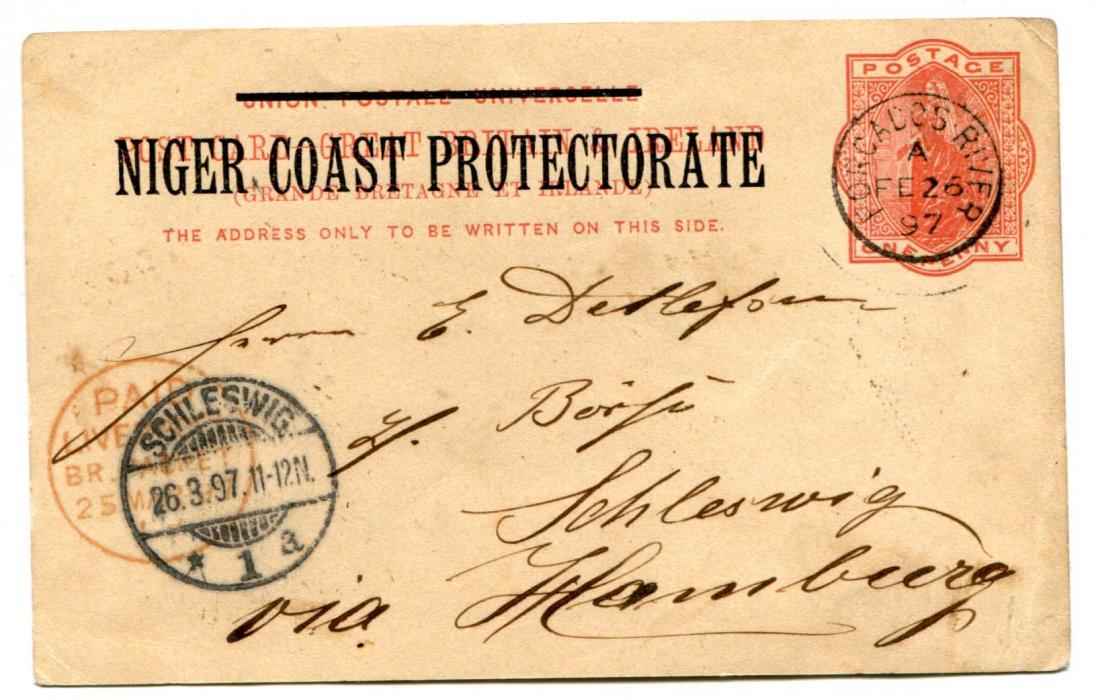 UNION POSTALE UNIVERSELLE
POST CARD - GREAT BRITAIN & IRELAND
NIGER COAST PROTECTORATE
(GRANDE BRETAGNE ET IRLANDE)
THE ADDRESS ONLY TO BE WRITTEN ON THIS SIDE.
POSTAGE
ONE PENNY
FORCADOS RIVER
A
FE 26
97
Herrn E. Detlefsen
z. Börse
Schleswig
via Hamburg
PAID
LIVE
BR. PACKET
25 MA
SCHLESWIG.
26.3.97.11-12N.
* 1 a